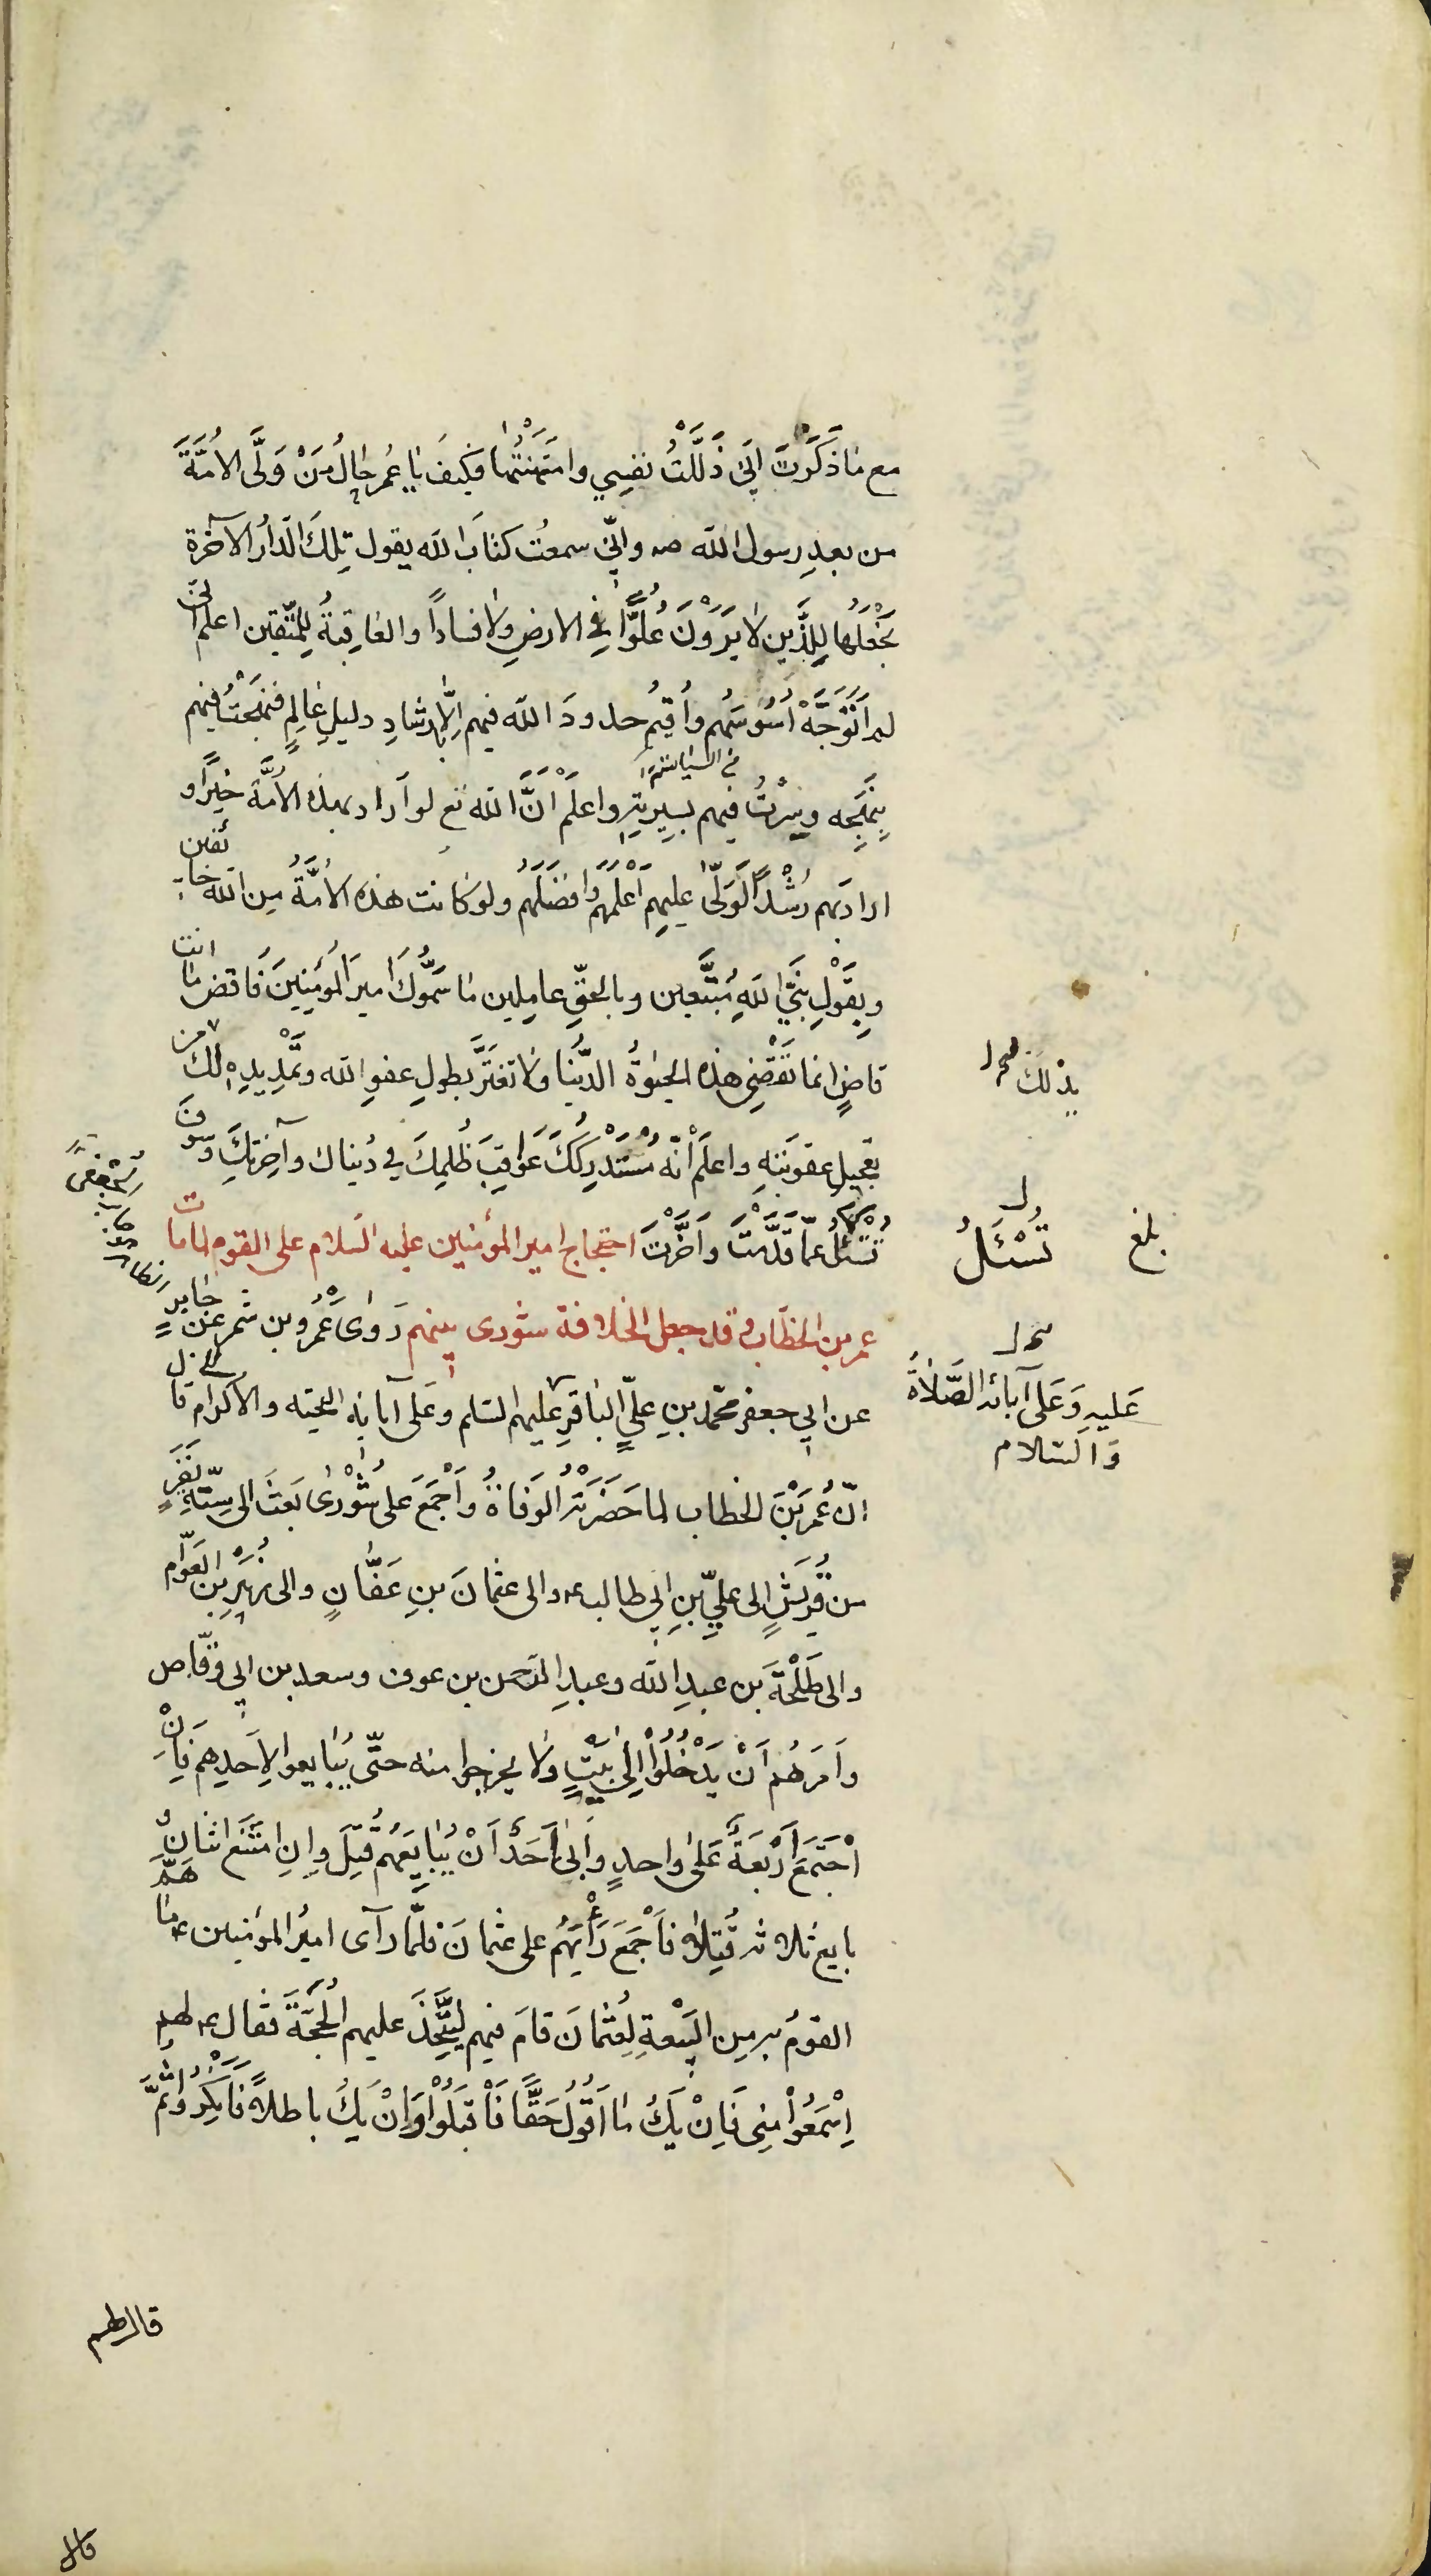 مع ما ذَكَرْتَ اِنّي ذَلَّلْتُ نفسِي وامْتَهَنْتُها فكيفَ يا عُمر حالُ مَنْ وَلَّى الاُمَّةَ
من بعدِ رسول الله ص واِنّي سمعتُ كتابَ الله يقول تِلكَ الدّارُ الآخرة
نَجْعَلُها لِلَّذين لا يَرَوْنَ عُلُوًّا فِي الارضِ ولا فسادًا والعاقِبةُ للمتّقين اعلم اني
لم اَتَوَجَّهْ اَسُوسَهُم واُقيمُ حدودَ الله فيهم اِلّا بارشادِ دليلٍ عالِمٍ فنَهَجْتُ فيهم
في السياسة
بِنَهْجِه وسِرْتُ فيهم بسِيرتِهِ واعلَمْ اَنَّ الله تع لو اَراد بهذه الاُمّة خيرًا و
ارادَ بهم رُشْدًا لَوَلّى عليهِم اَعْلَمَهُم وافضَلَهُم ولو كانت هذه الاُمَّةُ مِن الله خائفين
وبِقَوْلِ نَبِيِّ اللهِ مُتَّبِعين وبالحقّ عامِلين ما سَمَّوكَ اميرَ المُؤمِنِينَ فَاقض ما انت
قاضٍ انما تَقْضِي هذه الحَيوٰةَ الدُّنيا ولا تغتَرَّ بطولِ عفوِ الله وتَمْدِيدِهِ لك من
بذلك
بتعجيلِ عقوبَتِهِ واعلَمْ اَنّه سَتُدْرِكُكَ عَواقِبَ ظُلمِكَ في دُنياك وآخرتِكَ وسوفَ
تُسْئَلُ عمّا قَدَّمْتَ واَخَّرْتَ احتجاج امير المؤمنين عليه السّلام على القوم لما مات
تُسْئَلُ
بلغ
عمر بن الخطّاب وقد جعل الخلافة شورى بينهم رَوىٰ عَمْرُو بن شمر عن جابرٍ
عن ابي جعفر محمّد بنِ عليٍّ الباقِرِ عليهم السّلم وعَلى آبائه التحيّه والاكرام قال
عَليهِ وَعَلى آبائه الصَّلاةُ
وَالسّلام
انّ عُمَرَ بْنَ الخطاب لما حَضَرَتْهُ الوَفاةُ واَجْمَعَ على شُوْرىٰ بَعَثَ الى سِتّةِ نَفَرٍ
من قُرَيشٍ اِلى عليّ بنِ ابي طالب ع والى عثمانَ بنِ عَفّانٍ والى زُبَيْرِ بن العَوّام
والى طَلْحَةَ بن عبدِ الله وعبدِ الرّحمن بن عوف وسعد بن ابي وقّاص
واَمَرَهُم اَنْ يَدْخُلُوْا اِلىٰ بَيْتٍ ولا يخرجوا منه حتّى يُبايعوا لِاَحدِهم فَاِنْ
اجْتَمَعَ اَرْبَعَةٌ عَلىٰ واحدٍ وَاَبىٰ اَحَدٌ اَنْ يُبايِعَهُم قُتِلَ واِنِ امْتَنَعَ اثنانِ
بايع ثلاثه قُتِلا فاَجْمَعَ رَأْيَهُم على عثمانَ فلمّا رآى اميرُ المؤمنين ع ما هَمَّ
القومُ به مِن البَيْعةِ لِعُثمانَ قامَ فيهم لِيَتَّخِذَ عليهم الحُجَّةَ فقال ع لهم
اِسْمَعُوْا مِنِّي فَاِنْ يَكُ ما اَقُوْلُ حَقًّا فَاْقبَلُوْا وَاِنْ يَكُ باطلاً فَاَنْكِرُوْا ثُمَّ
قال لهم
قال